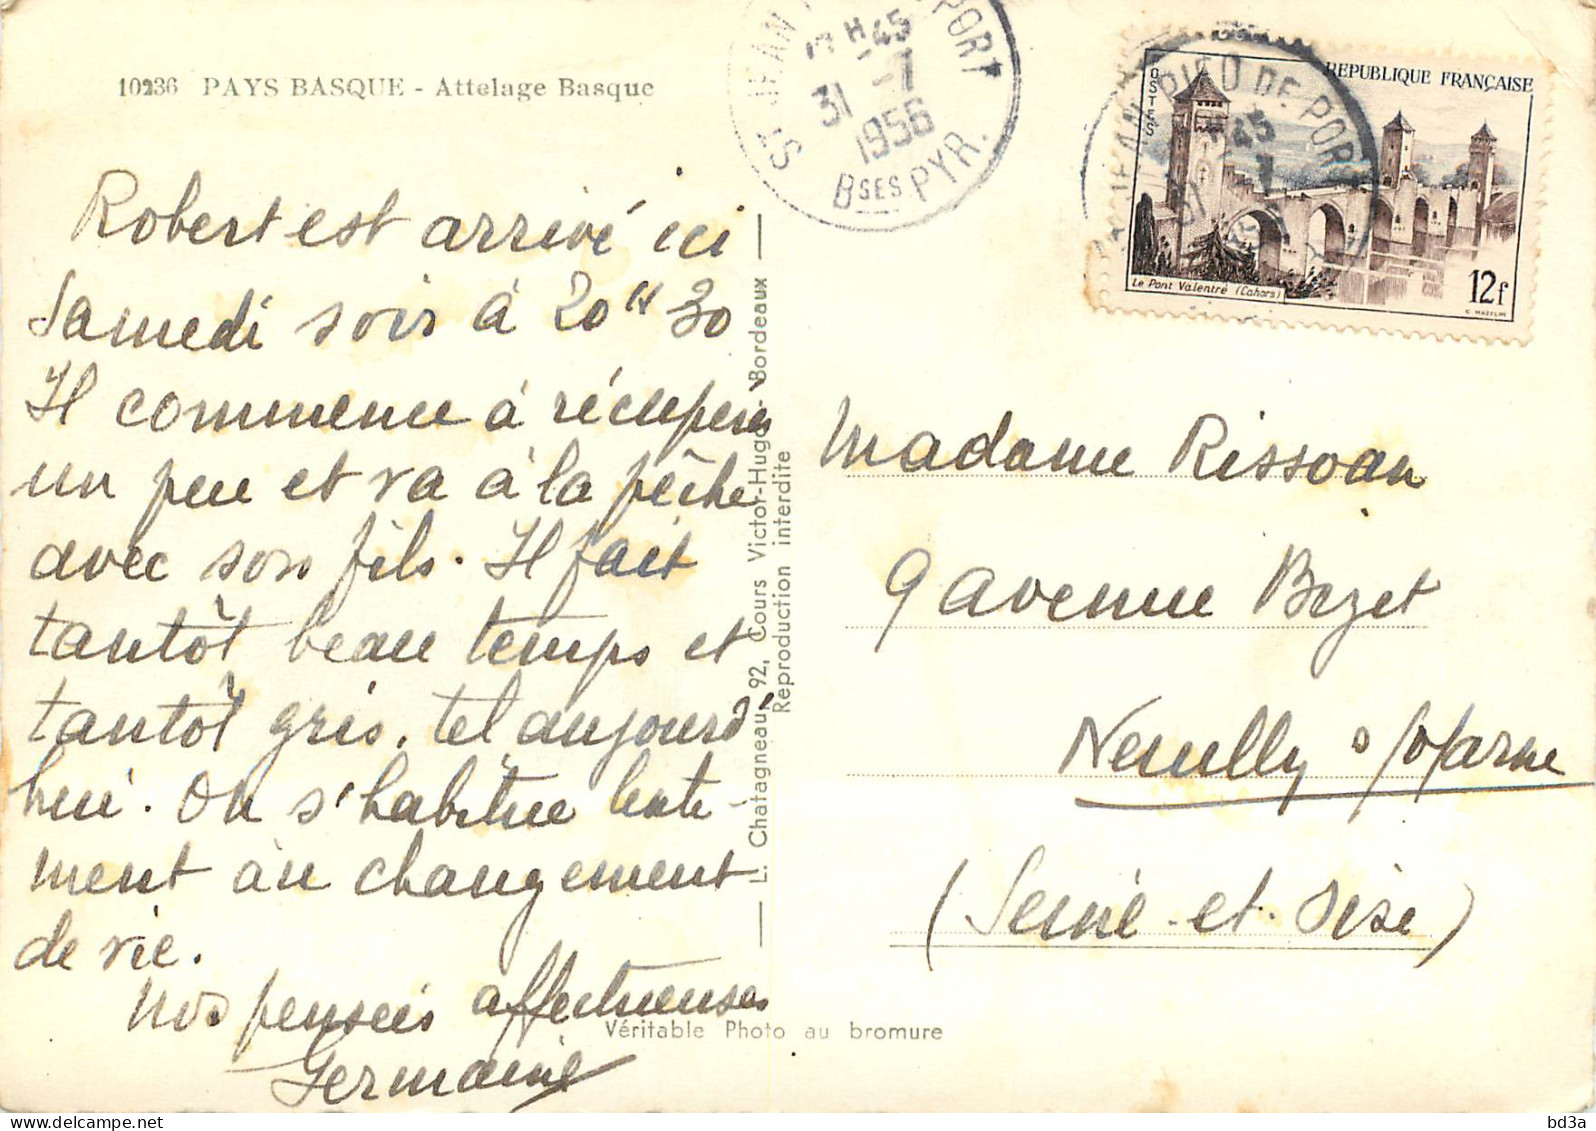 10236 PAYS BASQUE - Attelage Basque
Robert est arrivé ici
Samedi soir à 20H 30
Il commence à récupérer
un peu et va à la pêche
avec son fils. Il fait
tantôt beau temps et
tantôt gris, tel aujourd'
hui. On s'habitue lente-
ment au changement
de vie.
Nos pensées affectueuses
Germaine
L. Chatagneau, 92, Cours Victor-Hugo - Bordeaux
Reproduction interdite
Véritable Photo au bromure
ST JEAN PORT
H 45
31 -7
1956
BSES PYR.
JEAN PIED DE PORT
45
POSTES
REPUBLIQUE FRANÇAISE
Le Pont Valentré (Cahors)
12f
C. MAZELIN
Madame Rissoan
9 avenue Bizet
Neuilly s/Marne
(Seine-et-Oise)
delcampe.net
bd3a